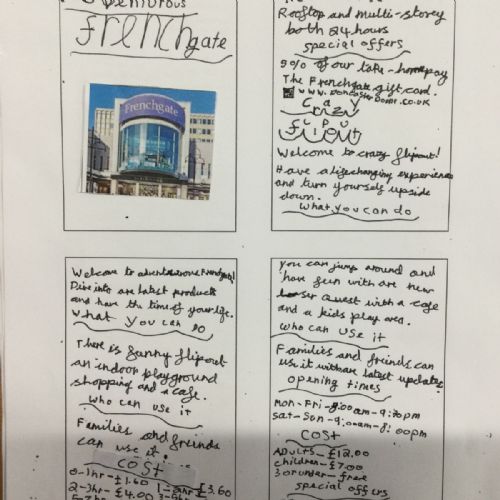 Frenchgate
Frenchgate
Rooftop and multi-storey
both 24 hours
special offers
90% of our take-home pay
The Frenchgate gift card.
www.doncasterdome.co.uk
Crazy
Flipout
Welcome to crazy flipout!
Have a life changing experience
and turn yourself upside
down.
What you can do
Welcome to adventurous Frenchgate!
Dive into are latest products
and have the time of your life.
What you can do
There is funny flipout
an indoor playground
shopping and a cafe.
Who can use it
Families and freinds
can use it.
COST
0-1hr-£1.60
2-3hr-£4.00
£3.60
you can jump around and
have fun with are new
laser quest with a cafe
and a kids play area.
Who can use it
Families and freinds can
use it with are latest updates.
opening times
mon-Fri-8:00am-9:30pm
sat-Sun-9:00am-8:00pm
COST
ADULTS-£12.00
children-£7.00
3 or under-free
special offers